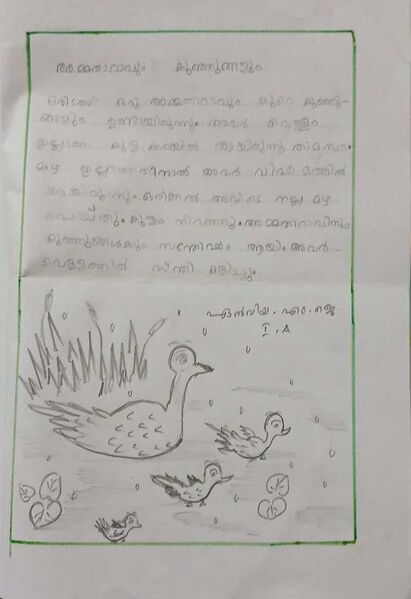 അമ്മതാറാവും കുഞ്ഞുങ്ങളും
ഒരിടത്ത് ഒരു അമ്മതാറാവും കുറെ കുഞ്ഞു-
ങ്ങളും ഉണ്ടായിരുന്നു. അവർ വെള്ളം
ഇല്ലാത്ത കുള കരയിൽ ആയിരുന്നു താമസം.
മഴ ഇല്ലാത്തതിനാൽ അവർ വിഷമത്തിൽ
ആയിരുന്നു. ഒരിക്കൽ അവിടെ നല്ല മഴ
പെയ്തു. കുളം നിറഞ്ഞു. അമ്മതാറാവിനും
കുഞ്ഞുങ്ങൾക്കും സന്തോഷം ആയി. അവർ
വെള്ളത്തിൽ നീന്തി കളിച്ചു.
എം. ജെ
I. A